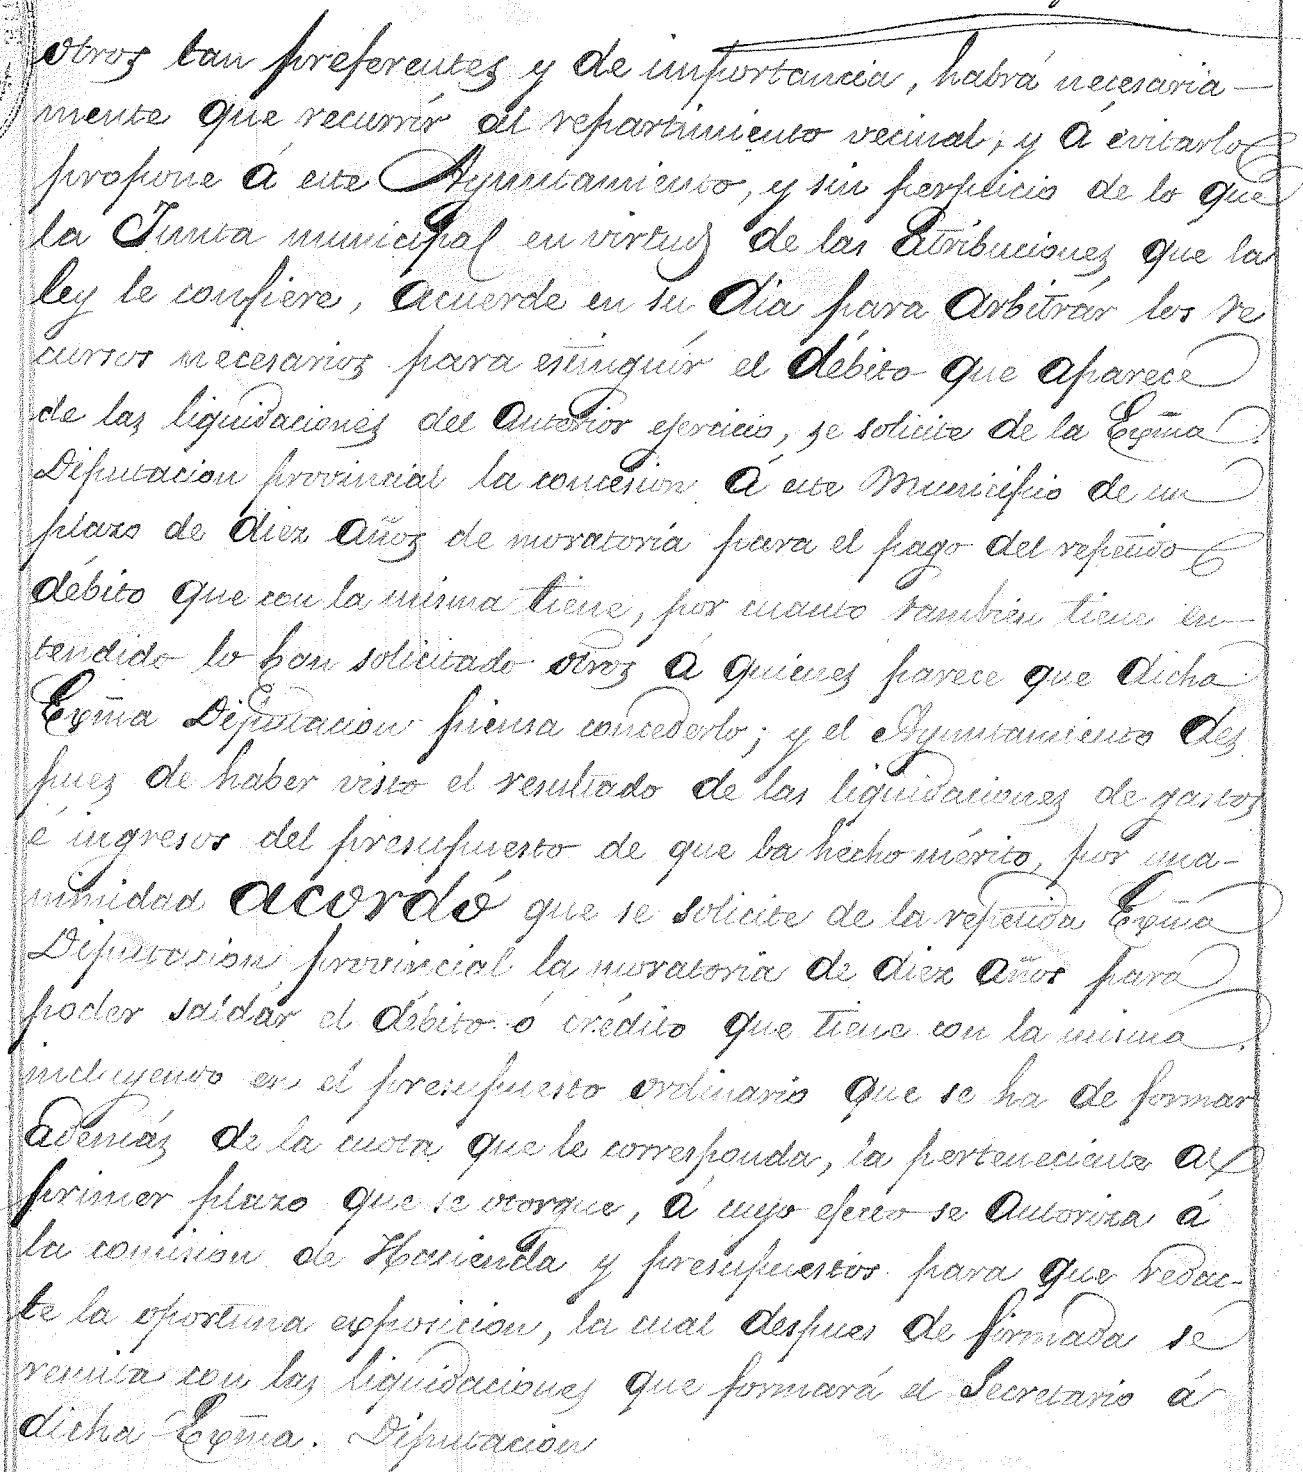 otros tan preferentes y de importancia, habrá necesaria-
mente que recurrir al repartimiento vecinal, y á evitarlo
propone á este Ayuntamiento, y sin perjuicio de lo que
la Junta municipal en virtud de las atribuciones que la
ley le confiere, acuerde en su dia para arbitrár los re
cursos necesarios para estinguír el débito que aparece
de las liquidaciones del anterior ejercicio, se solicite de la Exm̃a.
Diputacion provincial la concesion á este Municipio de un
plazo de diez años de moratoria para el pago del repetido
débito que con la misma tiene, por cuanto tambien tiene en-
tendido lo han solicitado otros á quienes parece que dicha
Exm̃a Diputacion piensa concederlo; y el Ayuntamiento des
pues de haber visto el resultado de las liquidaciones de gastos
é ingresos del presupuesto de que ba hecho mérito, por una-
nimidad acordó que se solicite de la repetida Exm̃a
Diputacion provincial la moratoria de diez años para
poder saldár el débito ó crédito que tiene con la misma,
incluyendo en el presupuesto ordinario que se ha de formar
además de la cuota que le corresponda, la perteneciente al
primer plazo que se otorgue, á cuyo efecto se autoriza á
la comision de Hacienda y presupuestos para que redac-
te la oportuna exposicion, la cual despues de firmada se
remita con las liquidaciones que formará el Secretario á
dicha Exm̃a. Diputacion